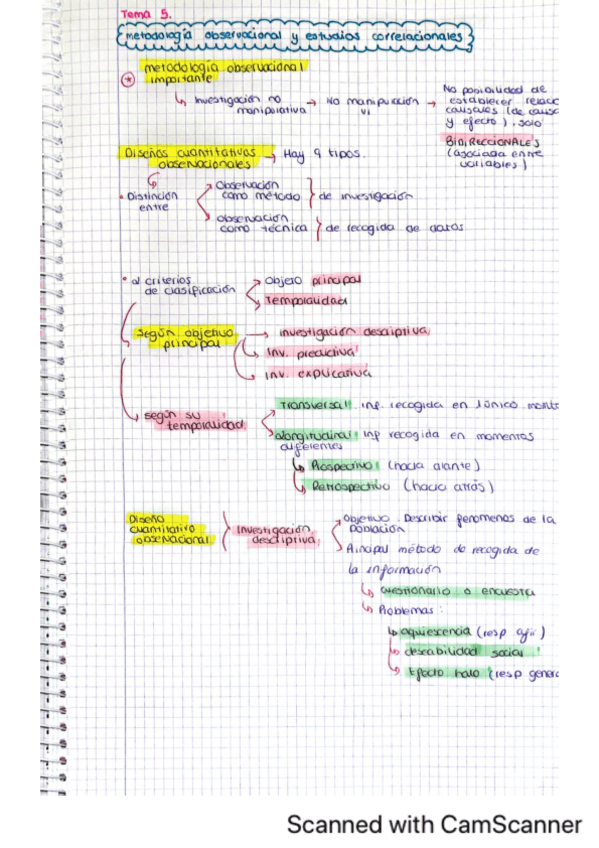 Tema 5.
metodología observacional y estudios correlacionales
metodología observacional
importante
Investigación no
manipulativa → No manipulación
VI
→ No posibilidad de
establecer relac
causales (de caus
y efecto), solo
BIDIRECCIONALES
(asociada entre
variables)
Diseños cuantitativos → Hay 9 tipos.
observacionales
• Distinción
entre
Observación
como método } de investigación
observación
como técnica } de recogida de datos
• criterios
de clasificación
objeto principal
Temporalidad
Según objetivo
principal
→ investigación descriptiva
Inv. predictiva
Inv. explicativa
según su
temporalidad
Transversal: inf. recogida en único
longitudinal: inf recogida en momentos
diferentes
Prospectivo: (hacia alante)
Retrospectivo (hacia atrás)
Diseño
cuantitativo
observacional
Investigación
descriptiva
Objetivo: Describir fenomenos de la
Población
Principal método de recogida de
la información
cuestionario o encuesta
Problemas:
aquiescencia (resp afir)
deseabilidad social
Efecto halo (resp genera
Scanned with CamScanner